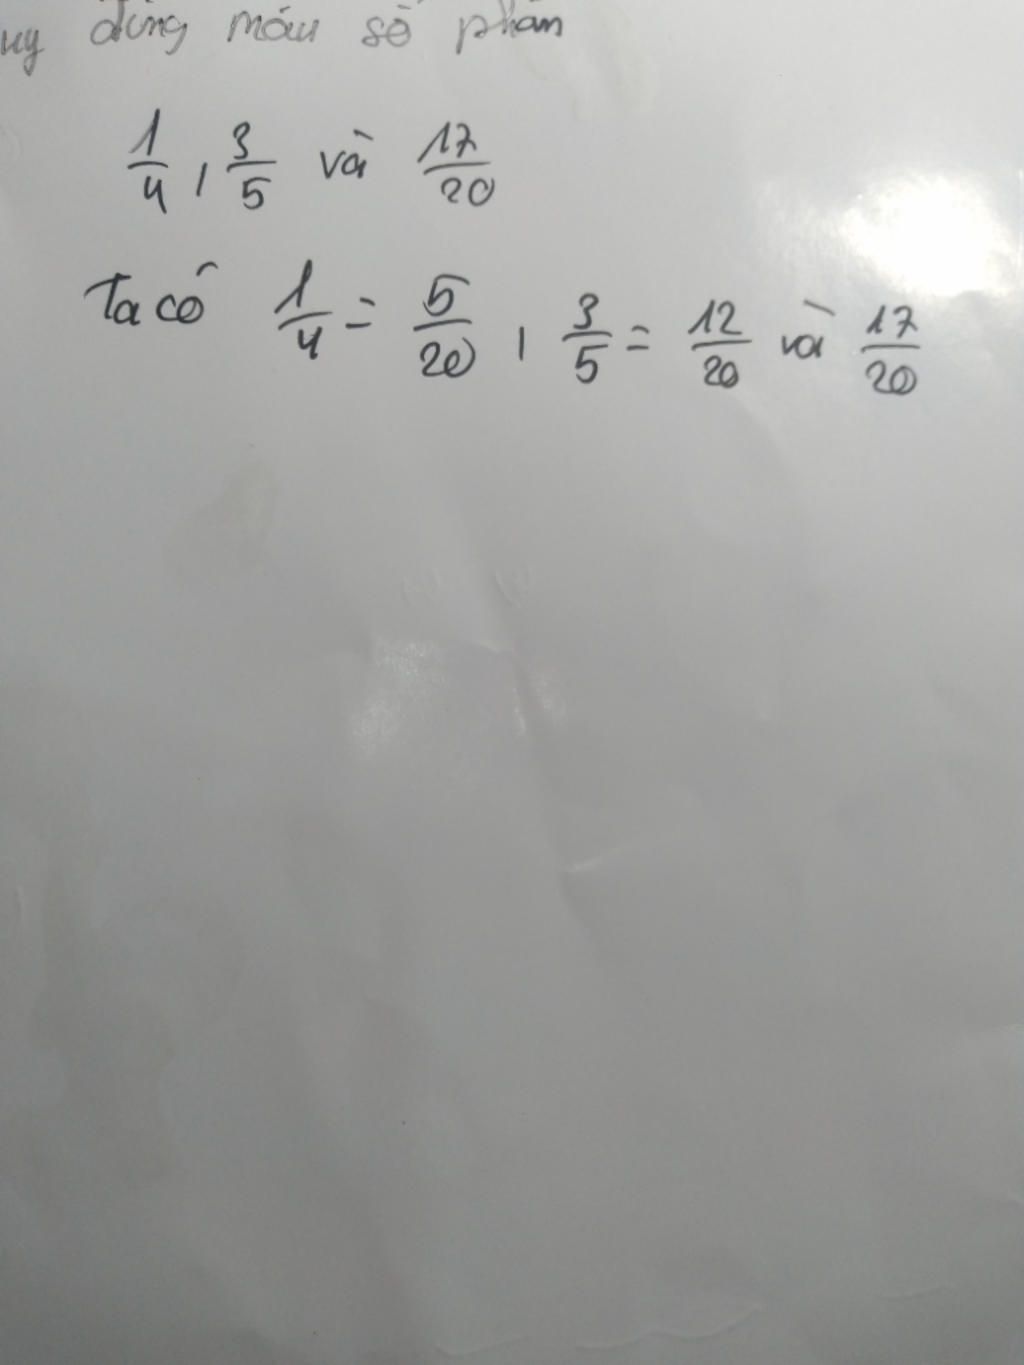 uy đồng mẫu số phân
1/4, 3/5 và 17/20
Ta có 1/4 = 5/20, 3/5 = 12/20 và 17/20